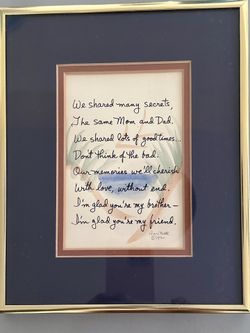 We shared many secrets,
The same Mom and Dad.
We shared lots of good times...
Don't think of the bad.
Our memories we'll cherish
With love, without end.
I'm glad you're my brother—
I'm glad you're my friend.